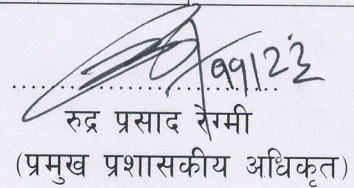 ११/२३
रुद्र प्रसाद रेग्मी
(प्रमुख प्रशासकीय अधिकृत)